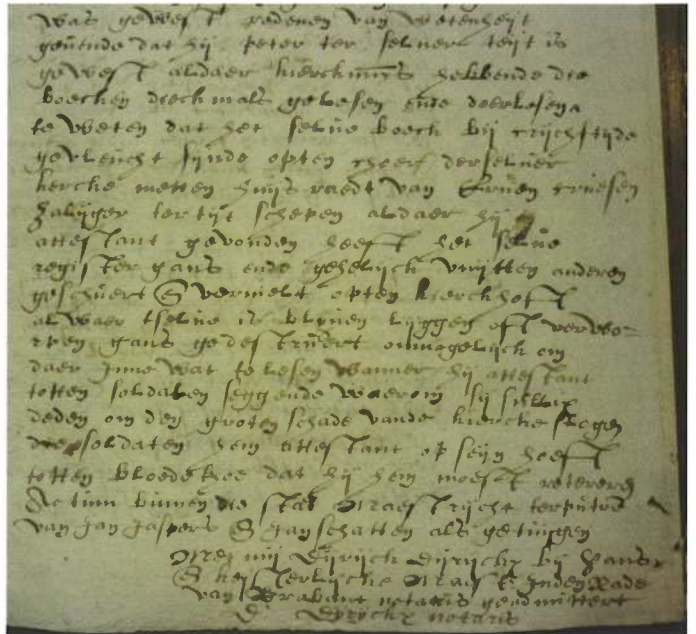 was geweest redenen van wetenheyt
gevende dat hij peter ter selver tijt is
geweest aldaer kierckm[eeste]rs hebbende die
boecken dieckmals gelesen ende doerlesen
te weten dat het selve boeck bij crijchstijde
gevleucht sijnde opten choer derselver
kercke metten huijs raedt van cruesen
zaliger ter tijt schepen aldaer hij
attestant gevonden heeft het selve
register gans ende gehelijck vuijtten anderen
geschuert en vernielt opten kierckhoff
alwaer tselve is bleven liggen oft verwor-
pen gans gedestrueert onmogelijck om
daer inne wat te lesen wanneer hij attestant
totten soldaten seggende waerom sij sulcx
deden om den groten schade vande kiercke slogen
die soldaten hem attestant op seijn hooft
totten bloede toe dat hij hem moest reterere
Actum binnen die stat Maestricht ter
van Jan Jaspers en Jan schatten als getuijgen
Met mij Dijrijck Dijrijckx bij
en keijsterlijcke Inden Rade
van Brabant notaris geadmittert
D. Dyryckx notaris